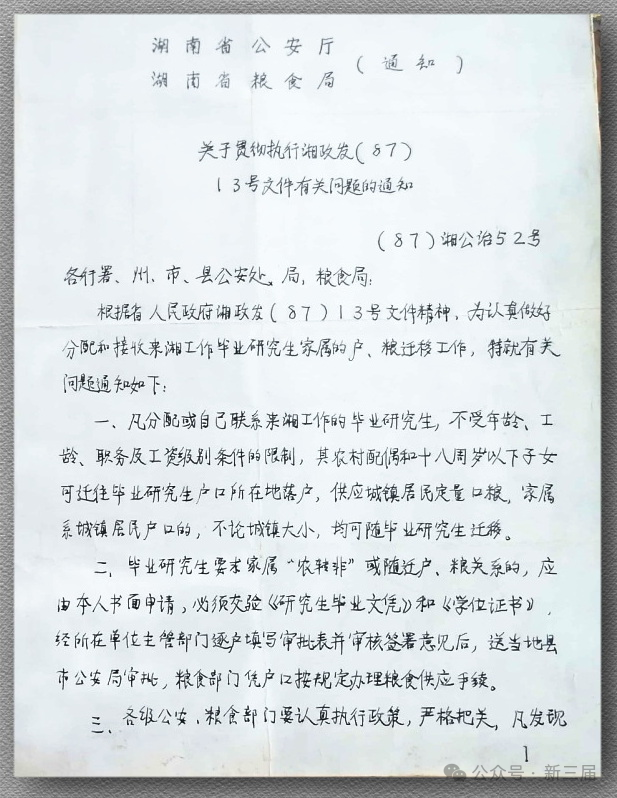 湖南省公安厅
湖南省粮食局
(通知)
关于贯彻执行湘政发(87)
13号文件有关问题的通知
(87)湘公治52号
各行署、州、市、县公安处、局,粮食局:
根据省人民政府湘政发(87)13号文件精神,为认真做好
分配和接收来湘工作毕业研究生家属的户、粮迁移工作,特就有关
问题通知如下:
一、凡分配或自己联系来湘工作的毕业研究生,不受年龄、工
龄、职务及工资级别条件的限制,其农村配偶和十八周岁以下子女
可迁往毕业研究生户口所在地落户,供应城镇居民定量口粮。家属
系城镇居民户口的,不论城镇大小,均可随毕业研究生迁移。
二、毕业研究生要求家属“农转非”或随迁户、粮关系的,应
由本人书面申请,必须交验《研究生毕业文凭》和《学位证书》,
经所在单位主管部门逐户填写审批表并审核签署意见后,送当地县
市公安局审批,粮食部门凭户口按规定办理粮食供应手续。
三、各级公安、粮食部门要认真执行政策,严格把关,凡发现
1
公众号·新三届